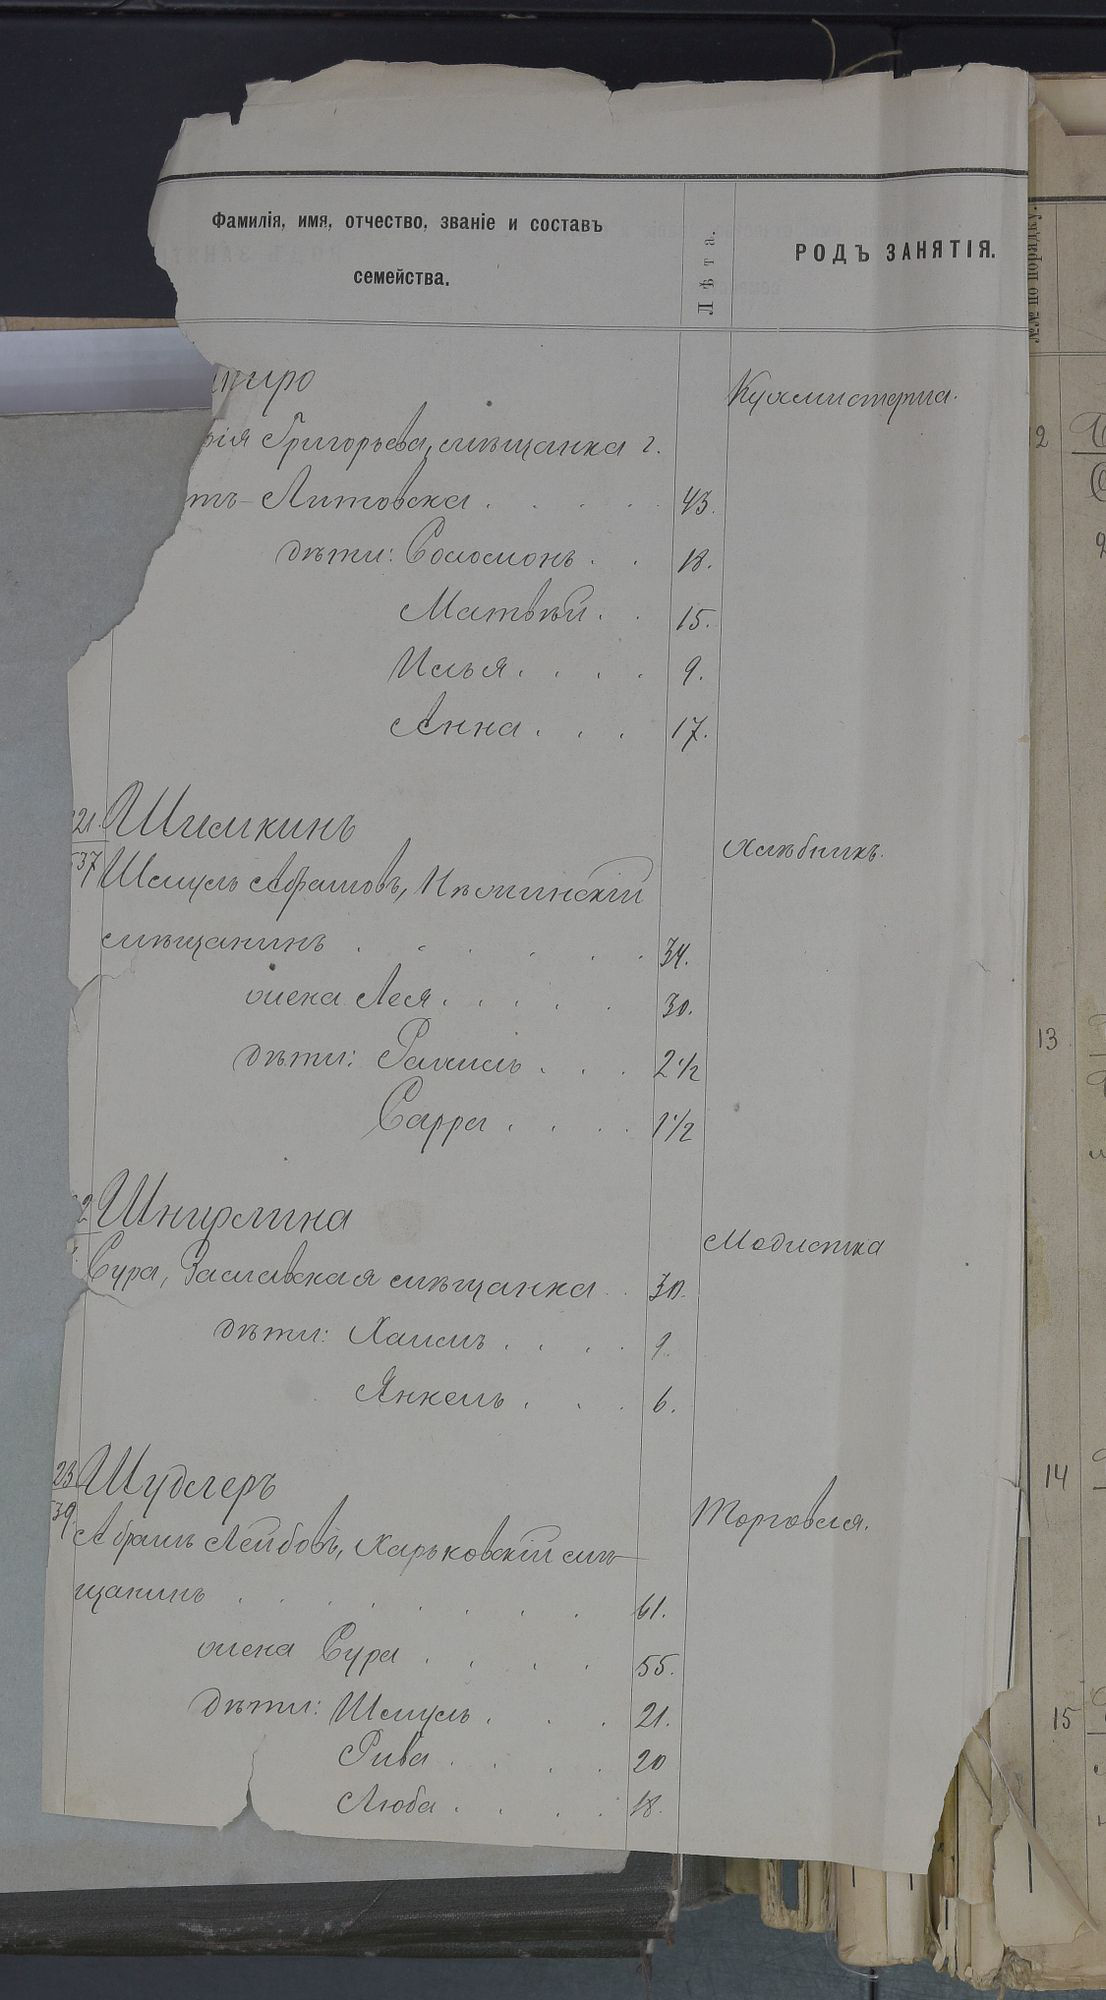 Фамилія, имя, отчество, званіе и составъ
семейства.
Лѣта.
РОДЪ ЗАНЯТІЯ.
№№ по порядку.
пиро
Кухмистерша.
рія Григорьева, мѣщанка г.
тъ-Литовска . . . . 43.
дѣти: Соломонъ . . 18.
Матвѣй . . 15.
Илья . . . . 9.
Анна . . . 17.
21. Шимкинъ
Хлѣбникъ.
37 Шмуль Абрамовъ,
мѣщанинъ . . . . . . 34.
жена Лея . . . . . 30.
дѣти: Рахиль . . . 2 1/2
Сарра . . . . 1 1/2
2 Шнирлина
Модистка
Сура, Заславская мѣщанка . . 30.
дѣти: Хаимъ . . . . 9.
Янкель . . . 6.
23 Шудлеръ
Торговля.
39. Абрамъ Лейбовъ, Харьковскій мѣ-
щанинъ . . . . . . . . 61.
жена Сура . . . . 55.
дѣти: Шмуль . . . 21.
Рива . . . . 20
Люба . . . . 18.
2
13
14
15